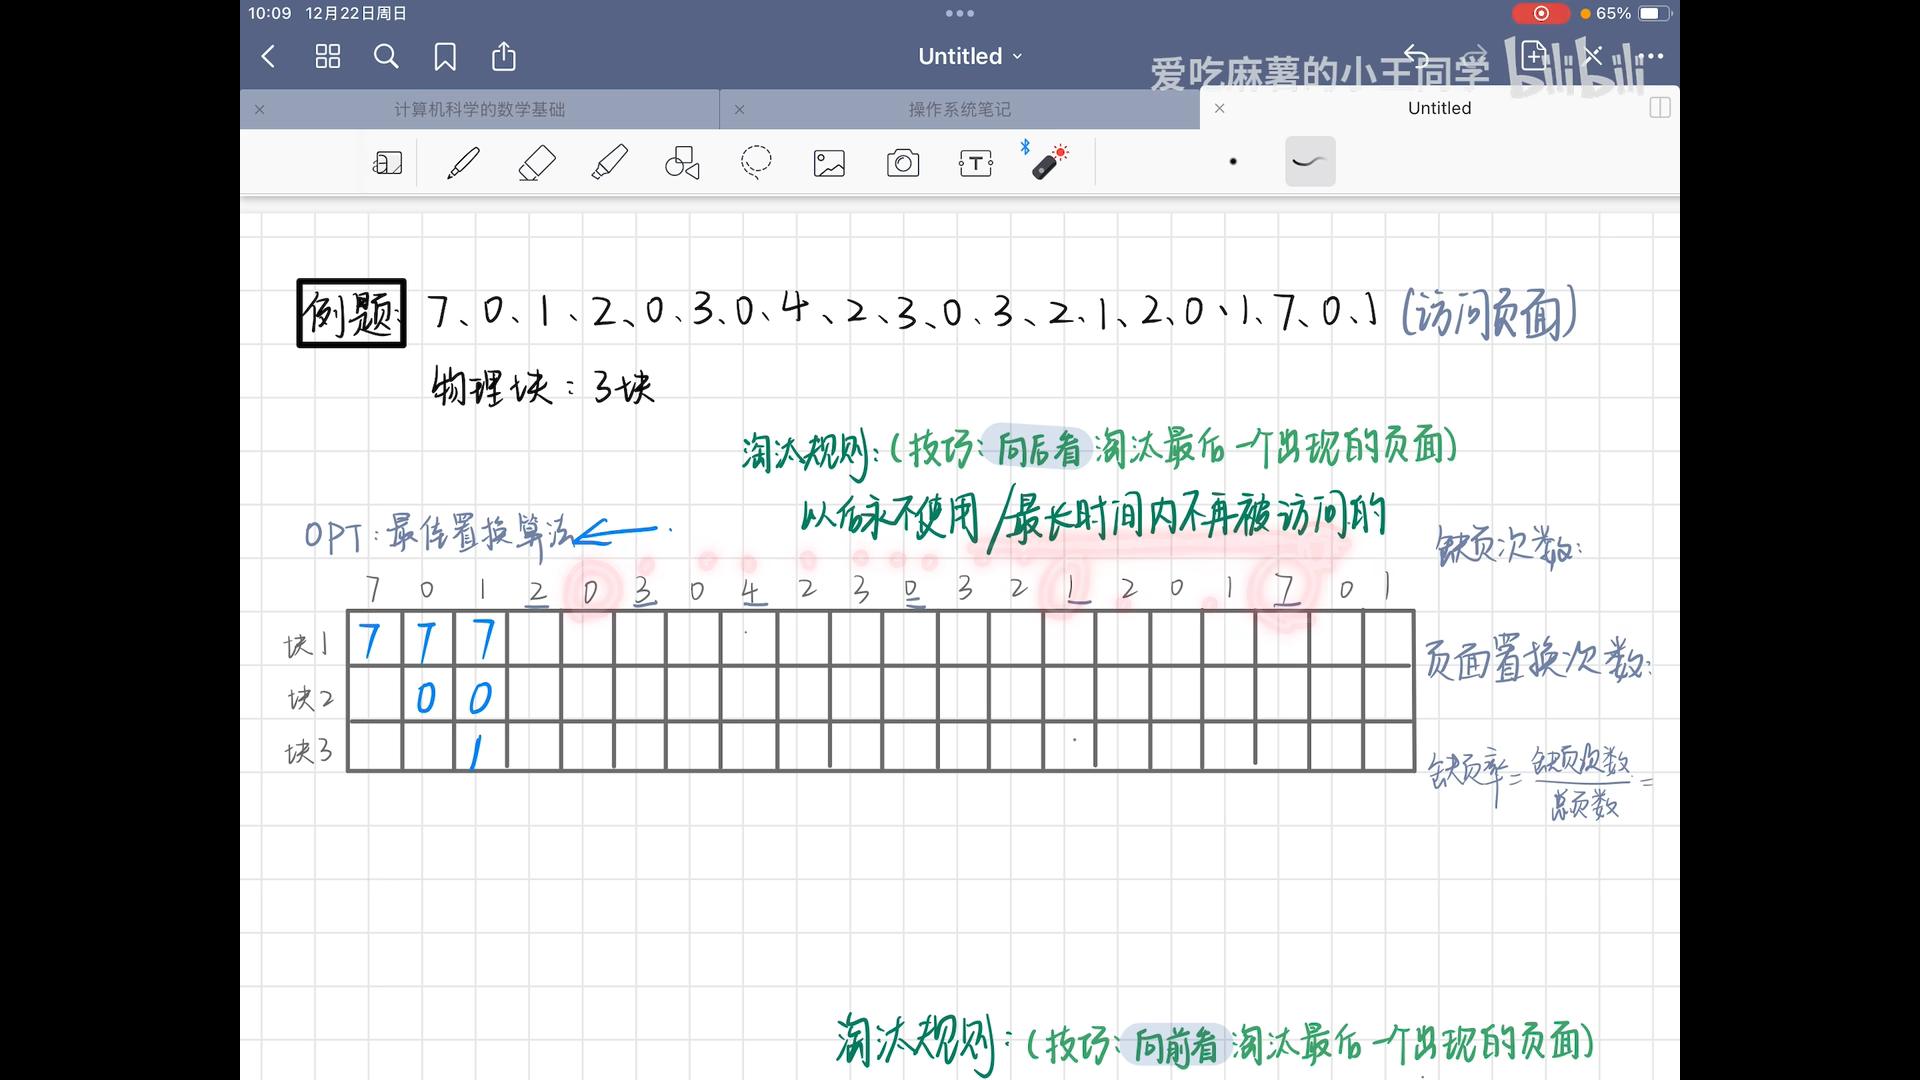 10:09 12月22日周日
65%
Untitled
爱吃麻薯的小王同学 bilibili
计算机科学的数学基础
操作系统笔记
Untitled
例题: 7、0、1、2、0、3、0、4、2、3、0、3、2、1、2、0、1、7、0、1 (访问页面)
物理块:3块
淘汰规则:(技巧:向后看 淘汰最后一个出现的页面)
以后永不使用/最长时间内不再被访问的
OPT:最佳置换算法
缺页次数:
7 0 1 2 0 3 0 4 2 3 0 3 2 1 2 0 1 7 0 1
块1 7 7 7
页面置换次数:
块2 0 0
块3 1
缺页率=缺页次数/总页数=
淘汰规则:(技巧:向前看 淘汰最后一个出现的页面)